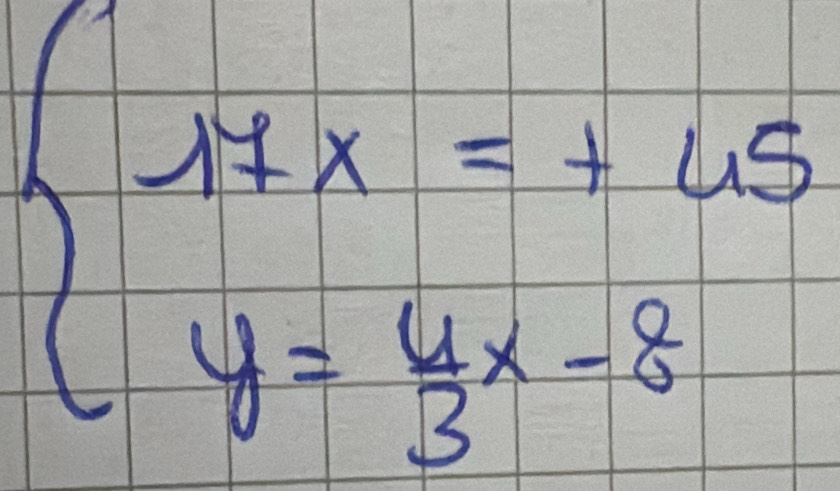 17x = + 45
y = 4/3 x - 8